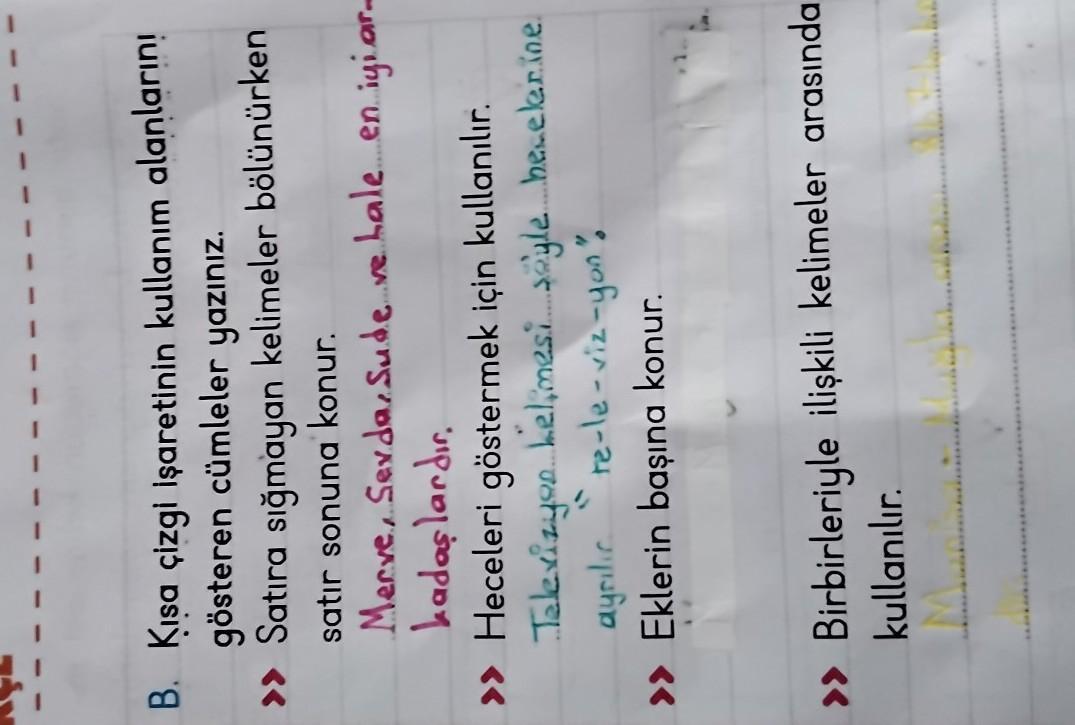 B. Kısa çizgi işaretinin kullanım alanlarını
gösteren cümleler yazınız.
>> Satıra sığmayan kelimeler bölünürken
satır sonuna konur.
Merve, Sevda, Sude ve hale en iyi ar-
kadaşlardır.
>> Heceleri göstermek için kullanılır.
Televizyon kelimesi şöyle hecelerine
ayrılır "te-le-viz-yon".
>> Eklerin başına konur.
>> Birbirleriyle ilişkili kelimeler arasında
kullanılır.